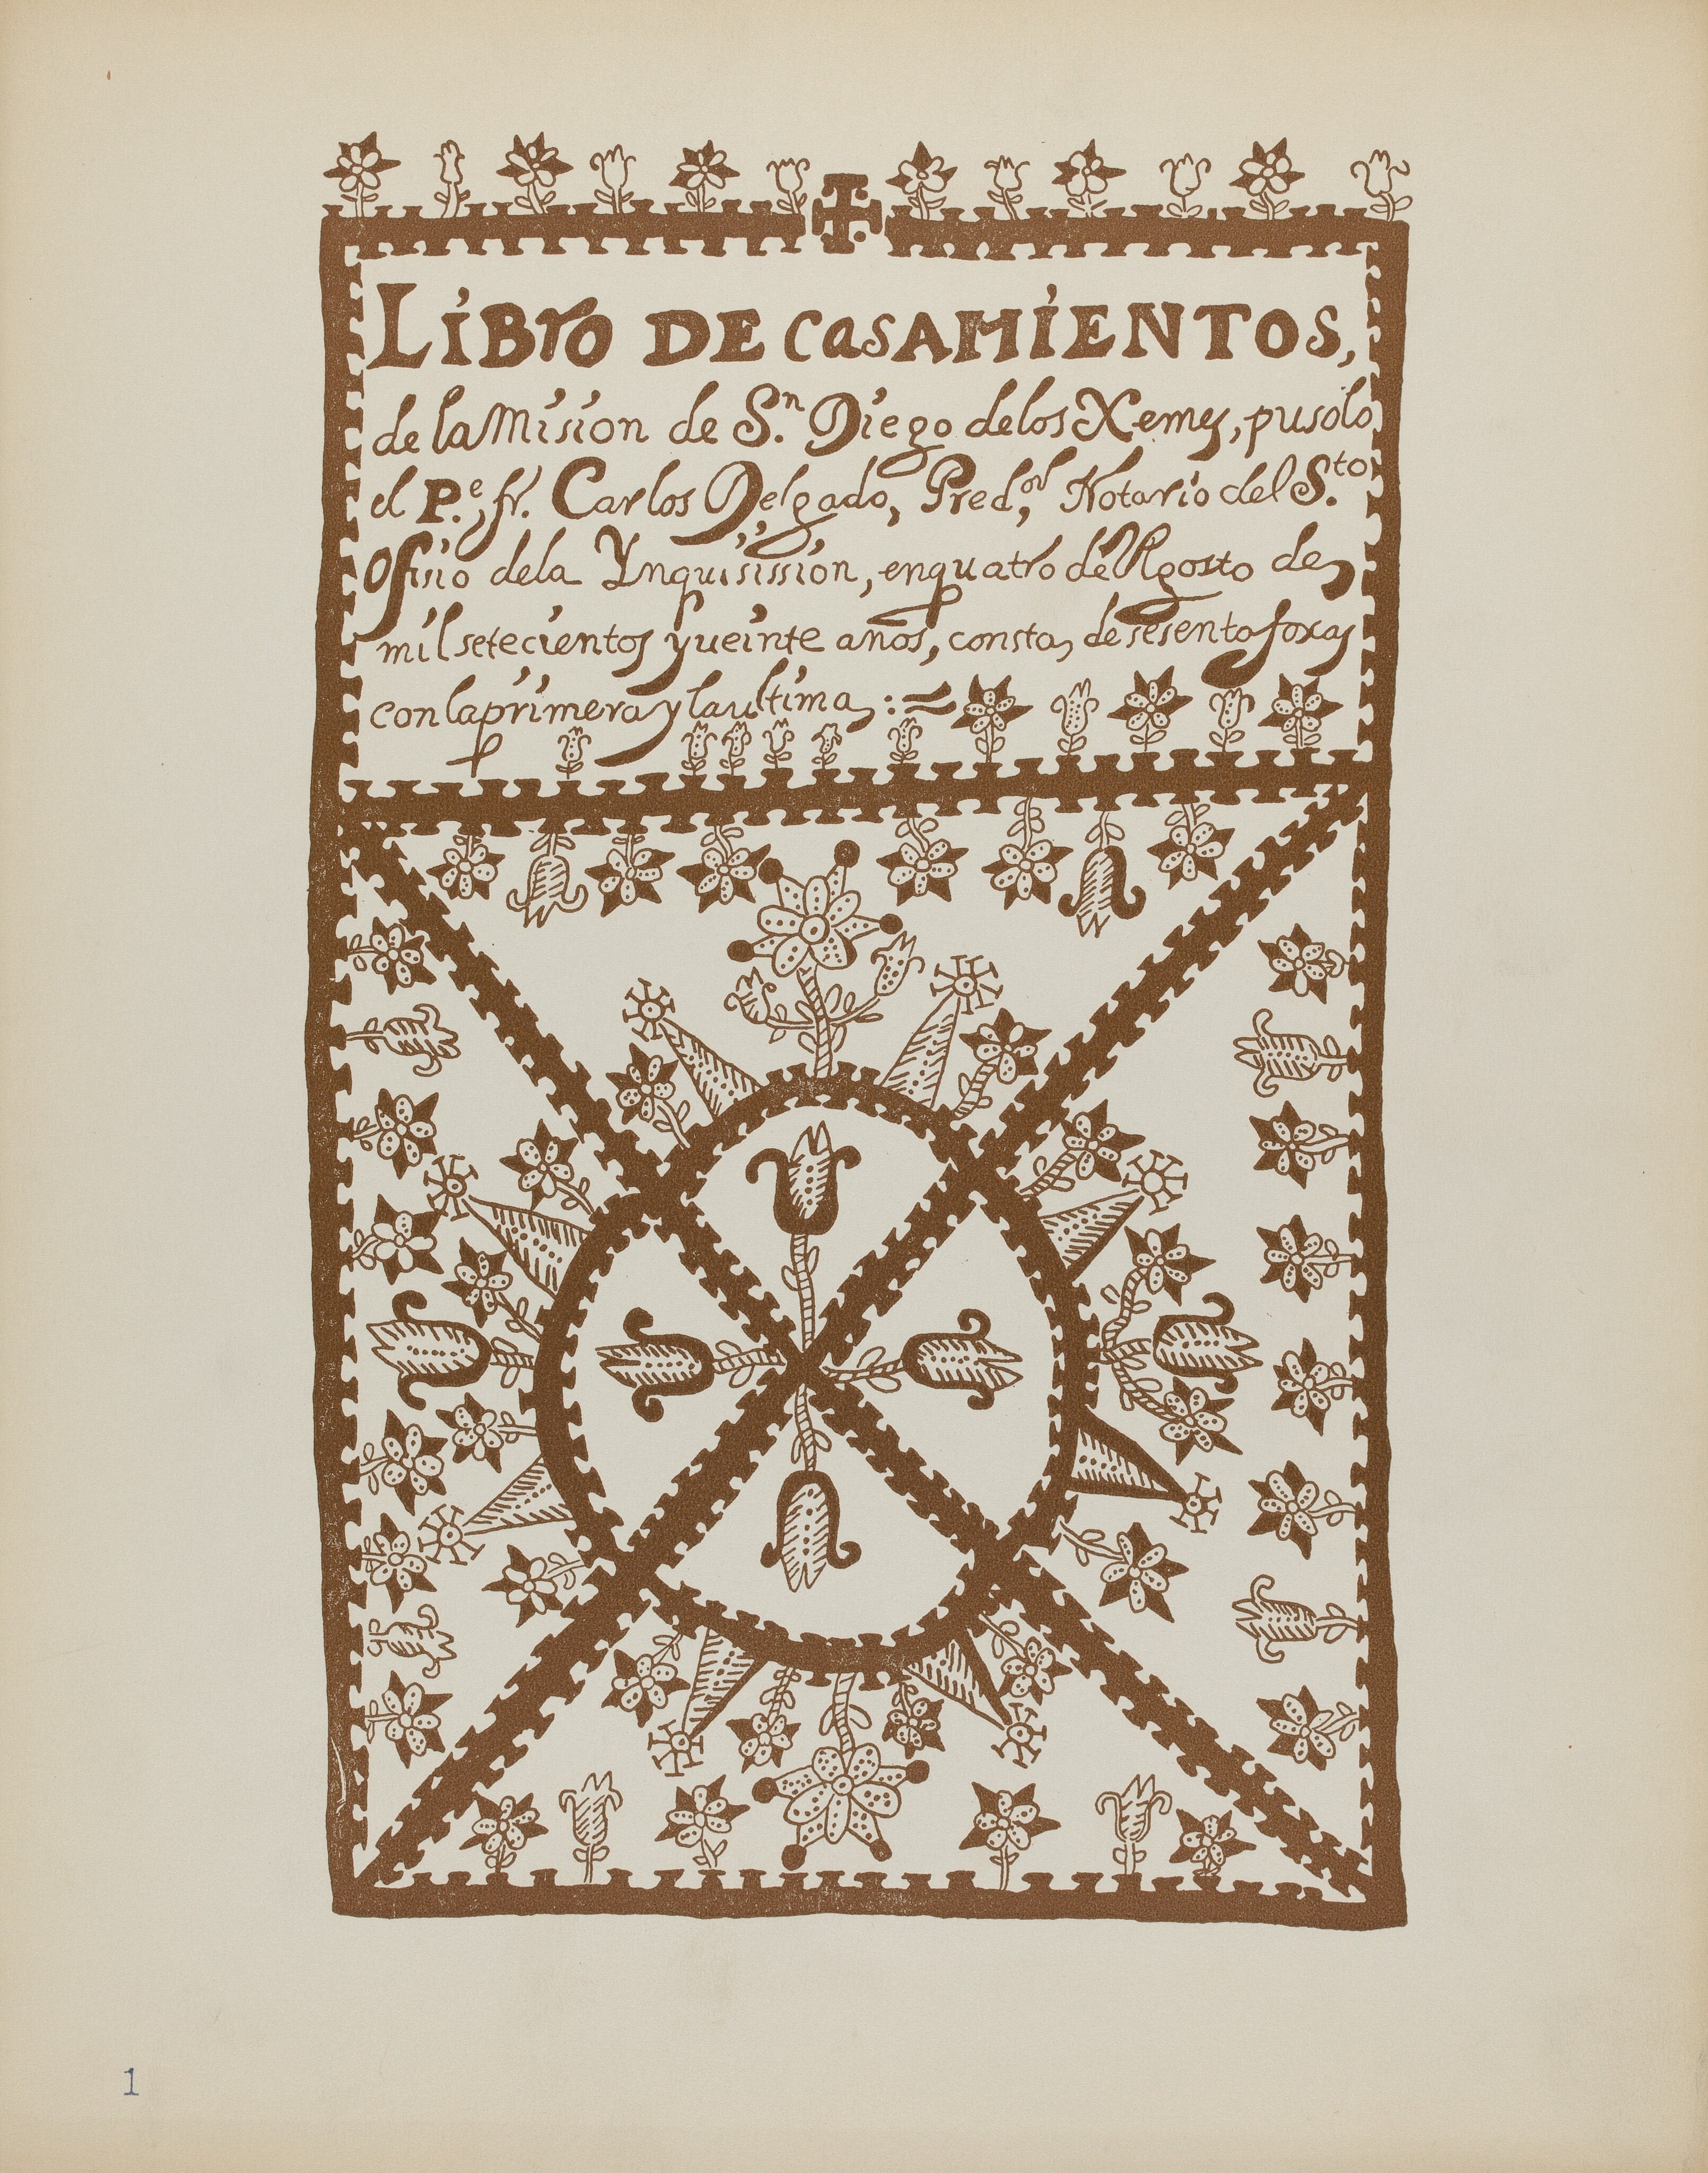 LiBro DE casAMiENTOS,
de la Mision de S.n Diego delos Xemes, pusolo
el P.e fr. Carlos Delgado, Pred.or Notario del S.to
Ofisio dela Ynquisission, enquatro de Agosto de
mil setecientos yueinte años, consta de sesenta foxas
con laprimera y laultima :=
1